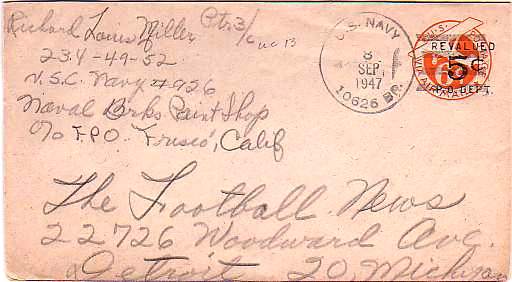 Richard Louis Miller Ptr3/c
234-49-52
U.S.C. Navy #926
Naval Brks Paint Shop
c/o F.P.O. Frisco, Calif
U.S. NAVY
8
SEP
1947
10626 BR.
U.S. POSTAGE
VIA AIR MAIL
6¢
REVALUED
5¢
P.O. DEPT.
The Football News
22726 Woodward Ave.
Detroit 20, Michigan